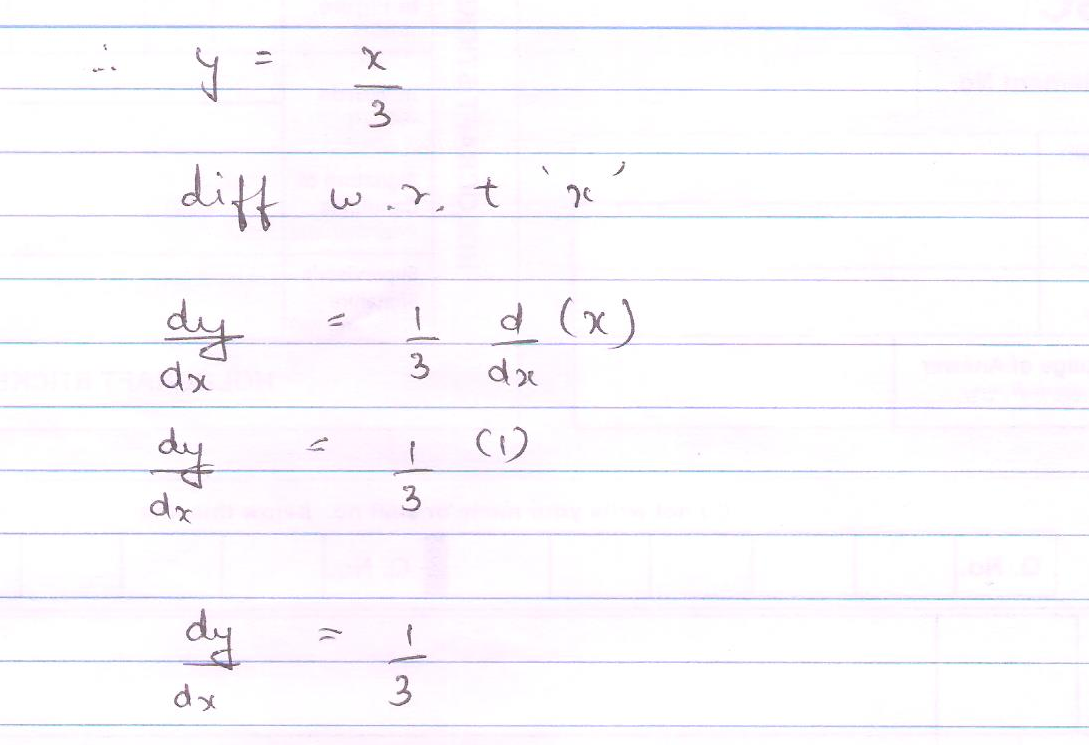 ∴ y = x/3
diff w.r.t 'x'
dy/dx = 1/3 d/dx (x)
dy/dx = 1/3 (1)
dy/dx = 1/3